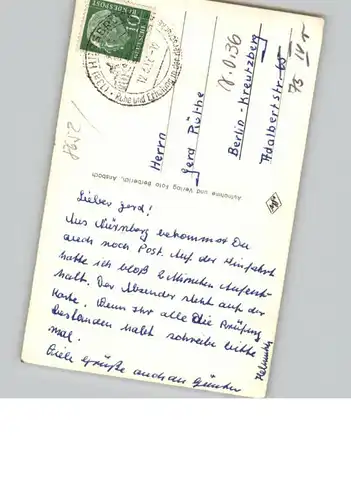 10
DEUTSCHE BUNDESPOST
8652/
Aufnahme und Verlag Foto Berberich, Ansbach
Agfa
Herrn
Gerd Röthe
Berlin-Kreuzberg
Adalbertstr. 65
75 IV r
Lieber Gerd!
Aus Nürnberg bekommst Du
auch noch Post. Auf der Hinfahrt
hatte ich bloß 6 Minuten Aufent-
halt. Der Absender steht auf der
Karte. Wenn Ihr alle die Prüfung
bestanden habt schreibe bitte
mal.
Viele Grüße auch an Günter
Helmuth